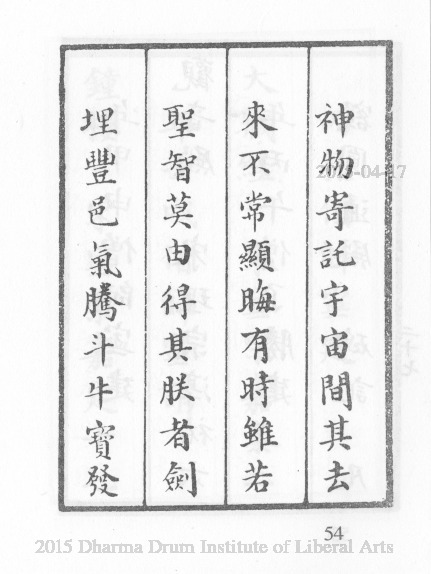 神物寄託宇宙間其去
來不常顯晦有時雖若
聖智莫由得其朕者劍
埋豐邑氣騰斗牛寶發
2015-04-17
54
2015 Dharma Drum Institute of Liberal Arts